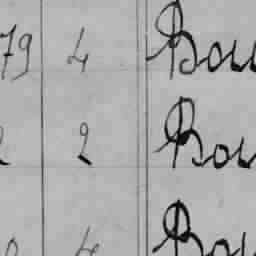 79 4 Bou
2 2 Bou
4 Bou